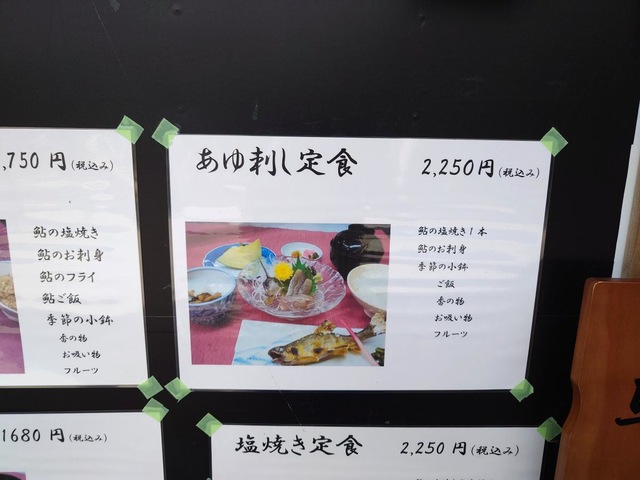 ,750 円(税込み)
鮎の塩焼き
鮎のお刺身
鮎のフライ
鮎ご飯
季節の小鉢
香の物
お吸い物
フルーツ
あゆ刺し定食 2,250円(税込み)
鮎の塩焼き1本
鮎のお刺身
季節の小鉢
ご飯
香の物
お吸い物
フルーツ
1680 円(税込み)
塩焼き定食 2,250 円(税込み)